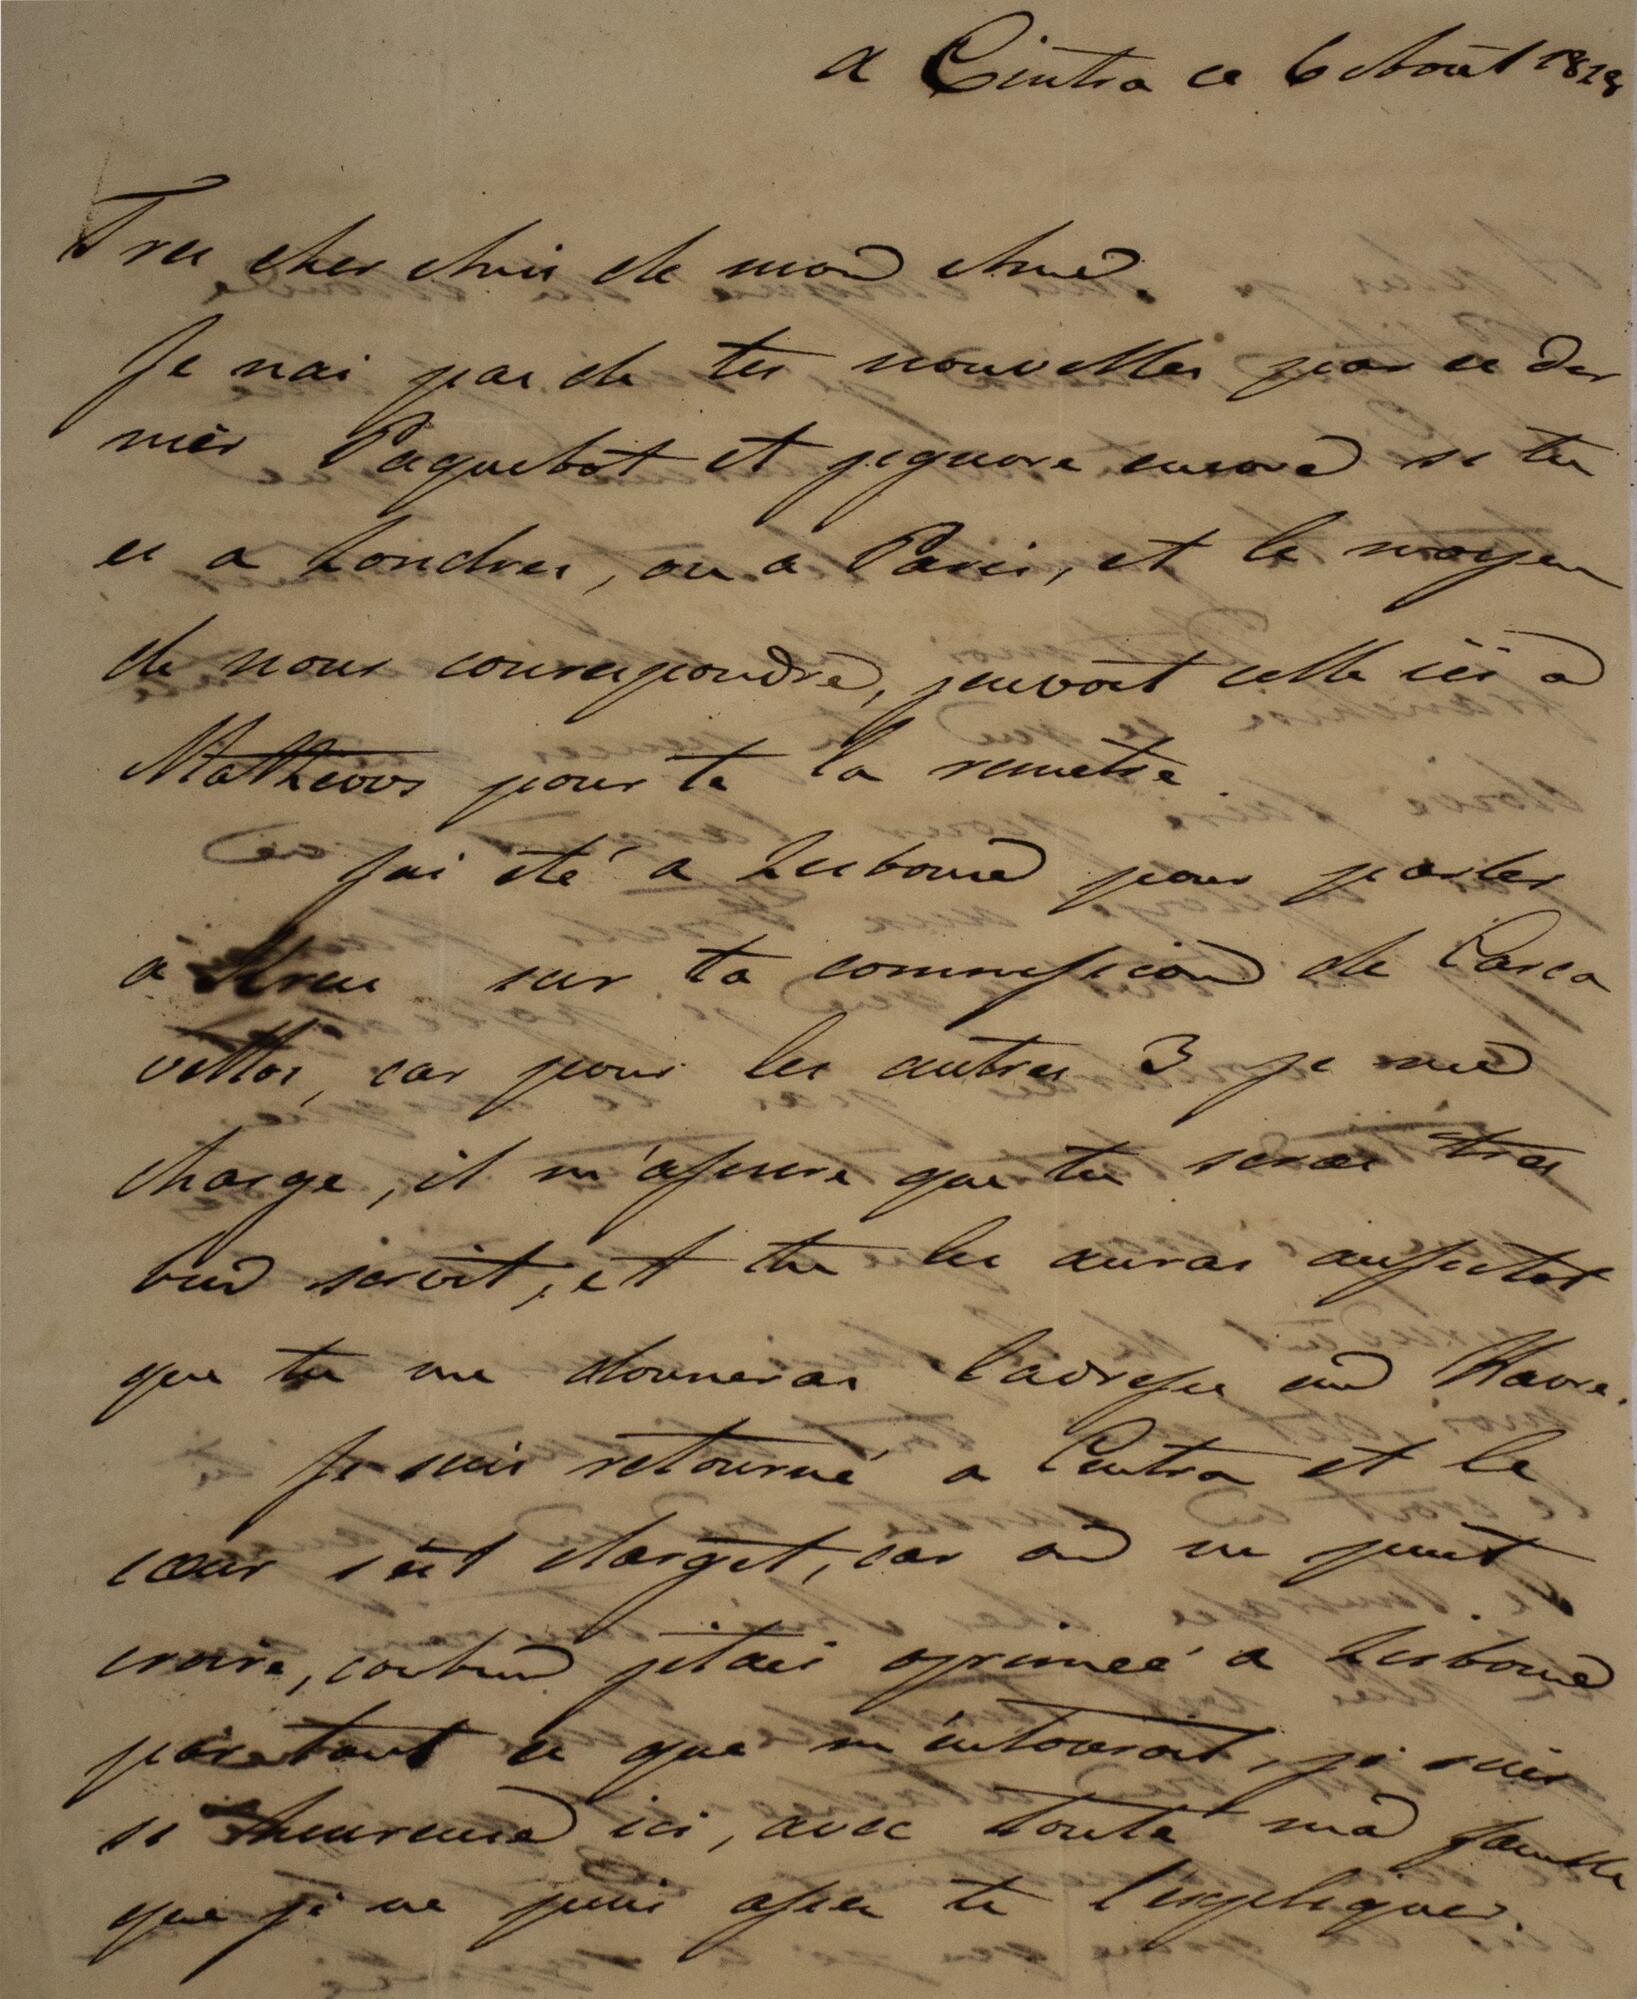 a Cintra ce 6 Août 1828
Tres cher Ami de mon Ame
Je nai pas de tes nouvelles par ce der
nièr Paquebot et jignore encore si tu
es a Londres, ou a Paris, et le moyen
de nous courespondre, jenvoit celle ici a
Mathews pour te la remètre
Jai eté a Lisbonne pour parler
a sur ta commission de Carca
vellos, car pour les autres 3 je me
charge, il m'assure que tu seras tres
bien servit, et tu les auras aussitot
que tu me donneras ladresse au Havre.
Je suis retourné a Cintra et le
cœur sèst élargit, car on ne peut
croire, conbien jetais oprimeé a Lisbonne
par tout ce que m'entouroit, je suis
si heureuse ici, avec toute ma famille
que je ne puis assez te l'expliquer.